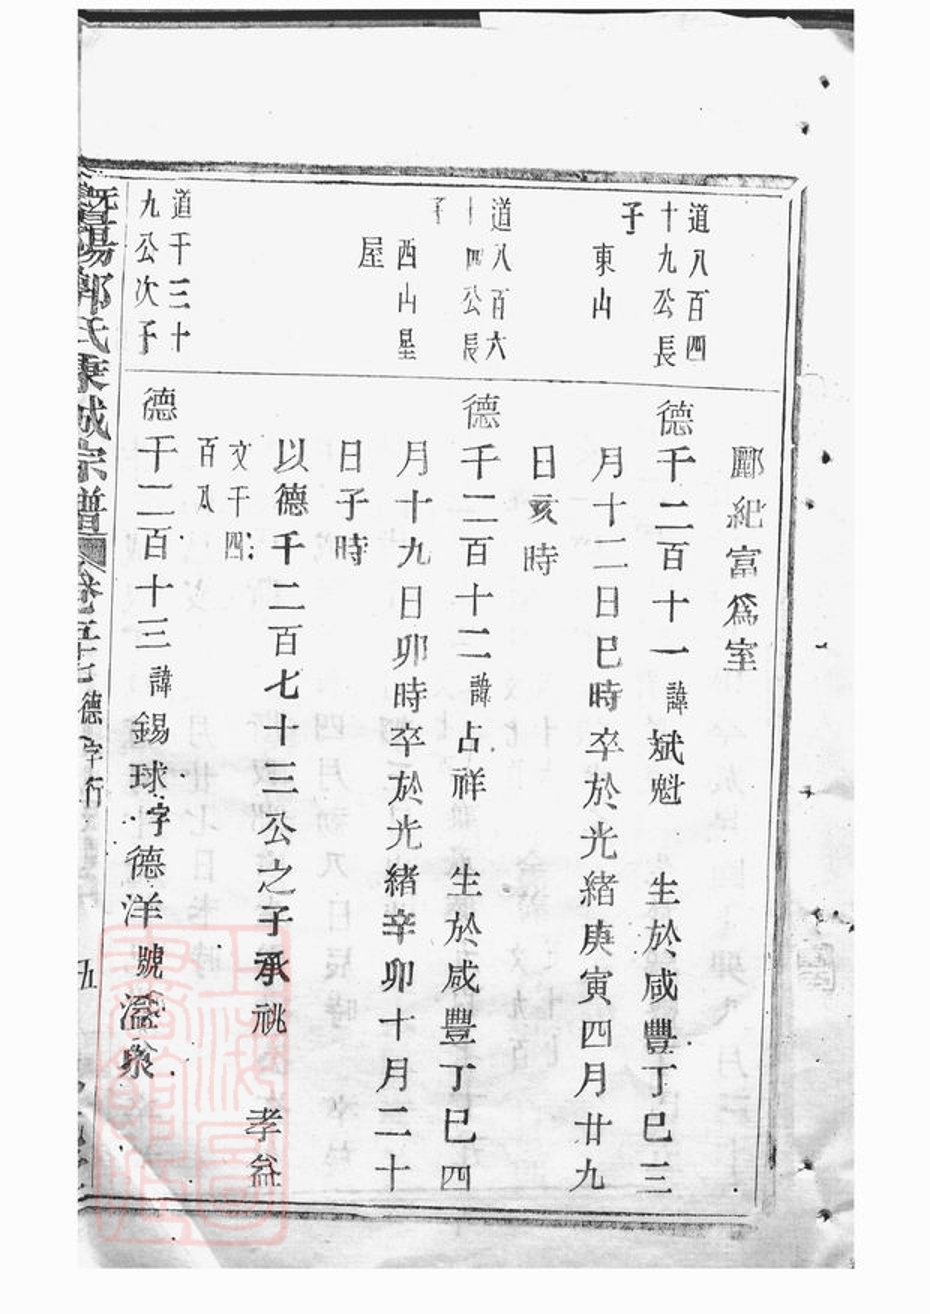 道八百四
十九公長
子
東山
酈紀富為室
德千二百十一諱斌魁 生於咸豐丁巳三
月十二日巳時卒於光緒庚寅四月廿九
日亥時
道八百六
十四公長
子
西山星
屋
德千二百十二諱占祥 生於咸豐丁巳四
月十九日卯時卒於光緒辛卯十月二十
日子時
以德千二百七十三公之子承祧 孝益
文千四
百八
道千三十
九公次子
德千二百十三諱錫球字德洋號溢泉
暨陽郭氏東城宗譜 卷五十七 德字行 五